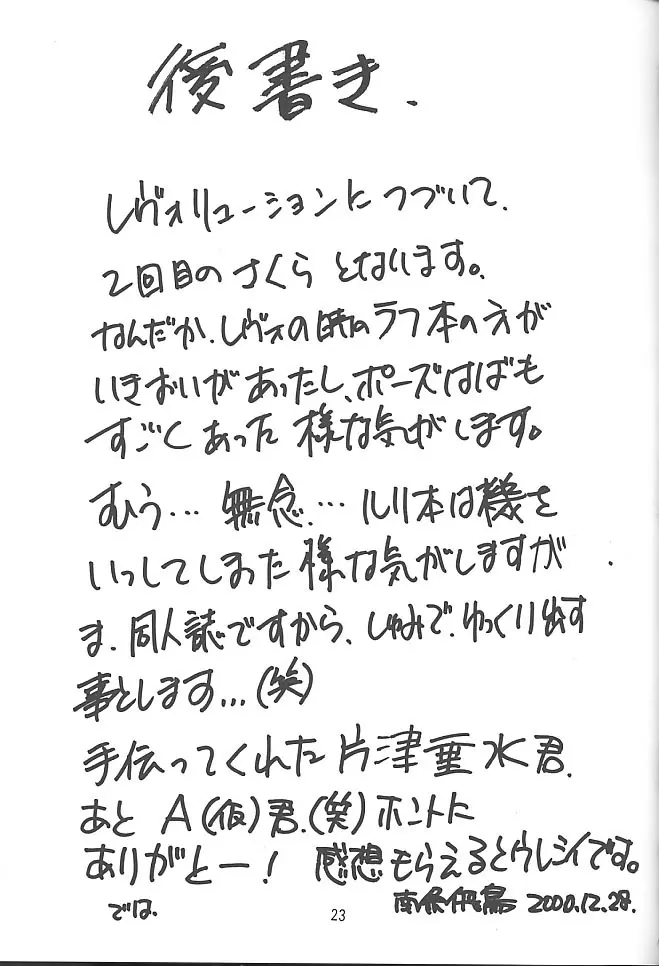 後書き.
レヴォリューションにつづいて.
2回目のさくらとなります。
なんだか、レヴォの時のラフ本の方が
いきおいがあったし、ポーズはばも
すごくあった様な気がします。
むう… 無念.… ルリ本は機を
いっしてしまった様な気がしますが
ま、同人誌ですから、しゅみで、ゆっくり出す
事とします…(笑)
手伝ってくれた片津垂水君.
あと A(仮)君.(笑)ホントに
ありがとー! 感想もらえるとウレシイです。
では. 2000.12.28.
23